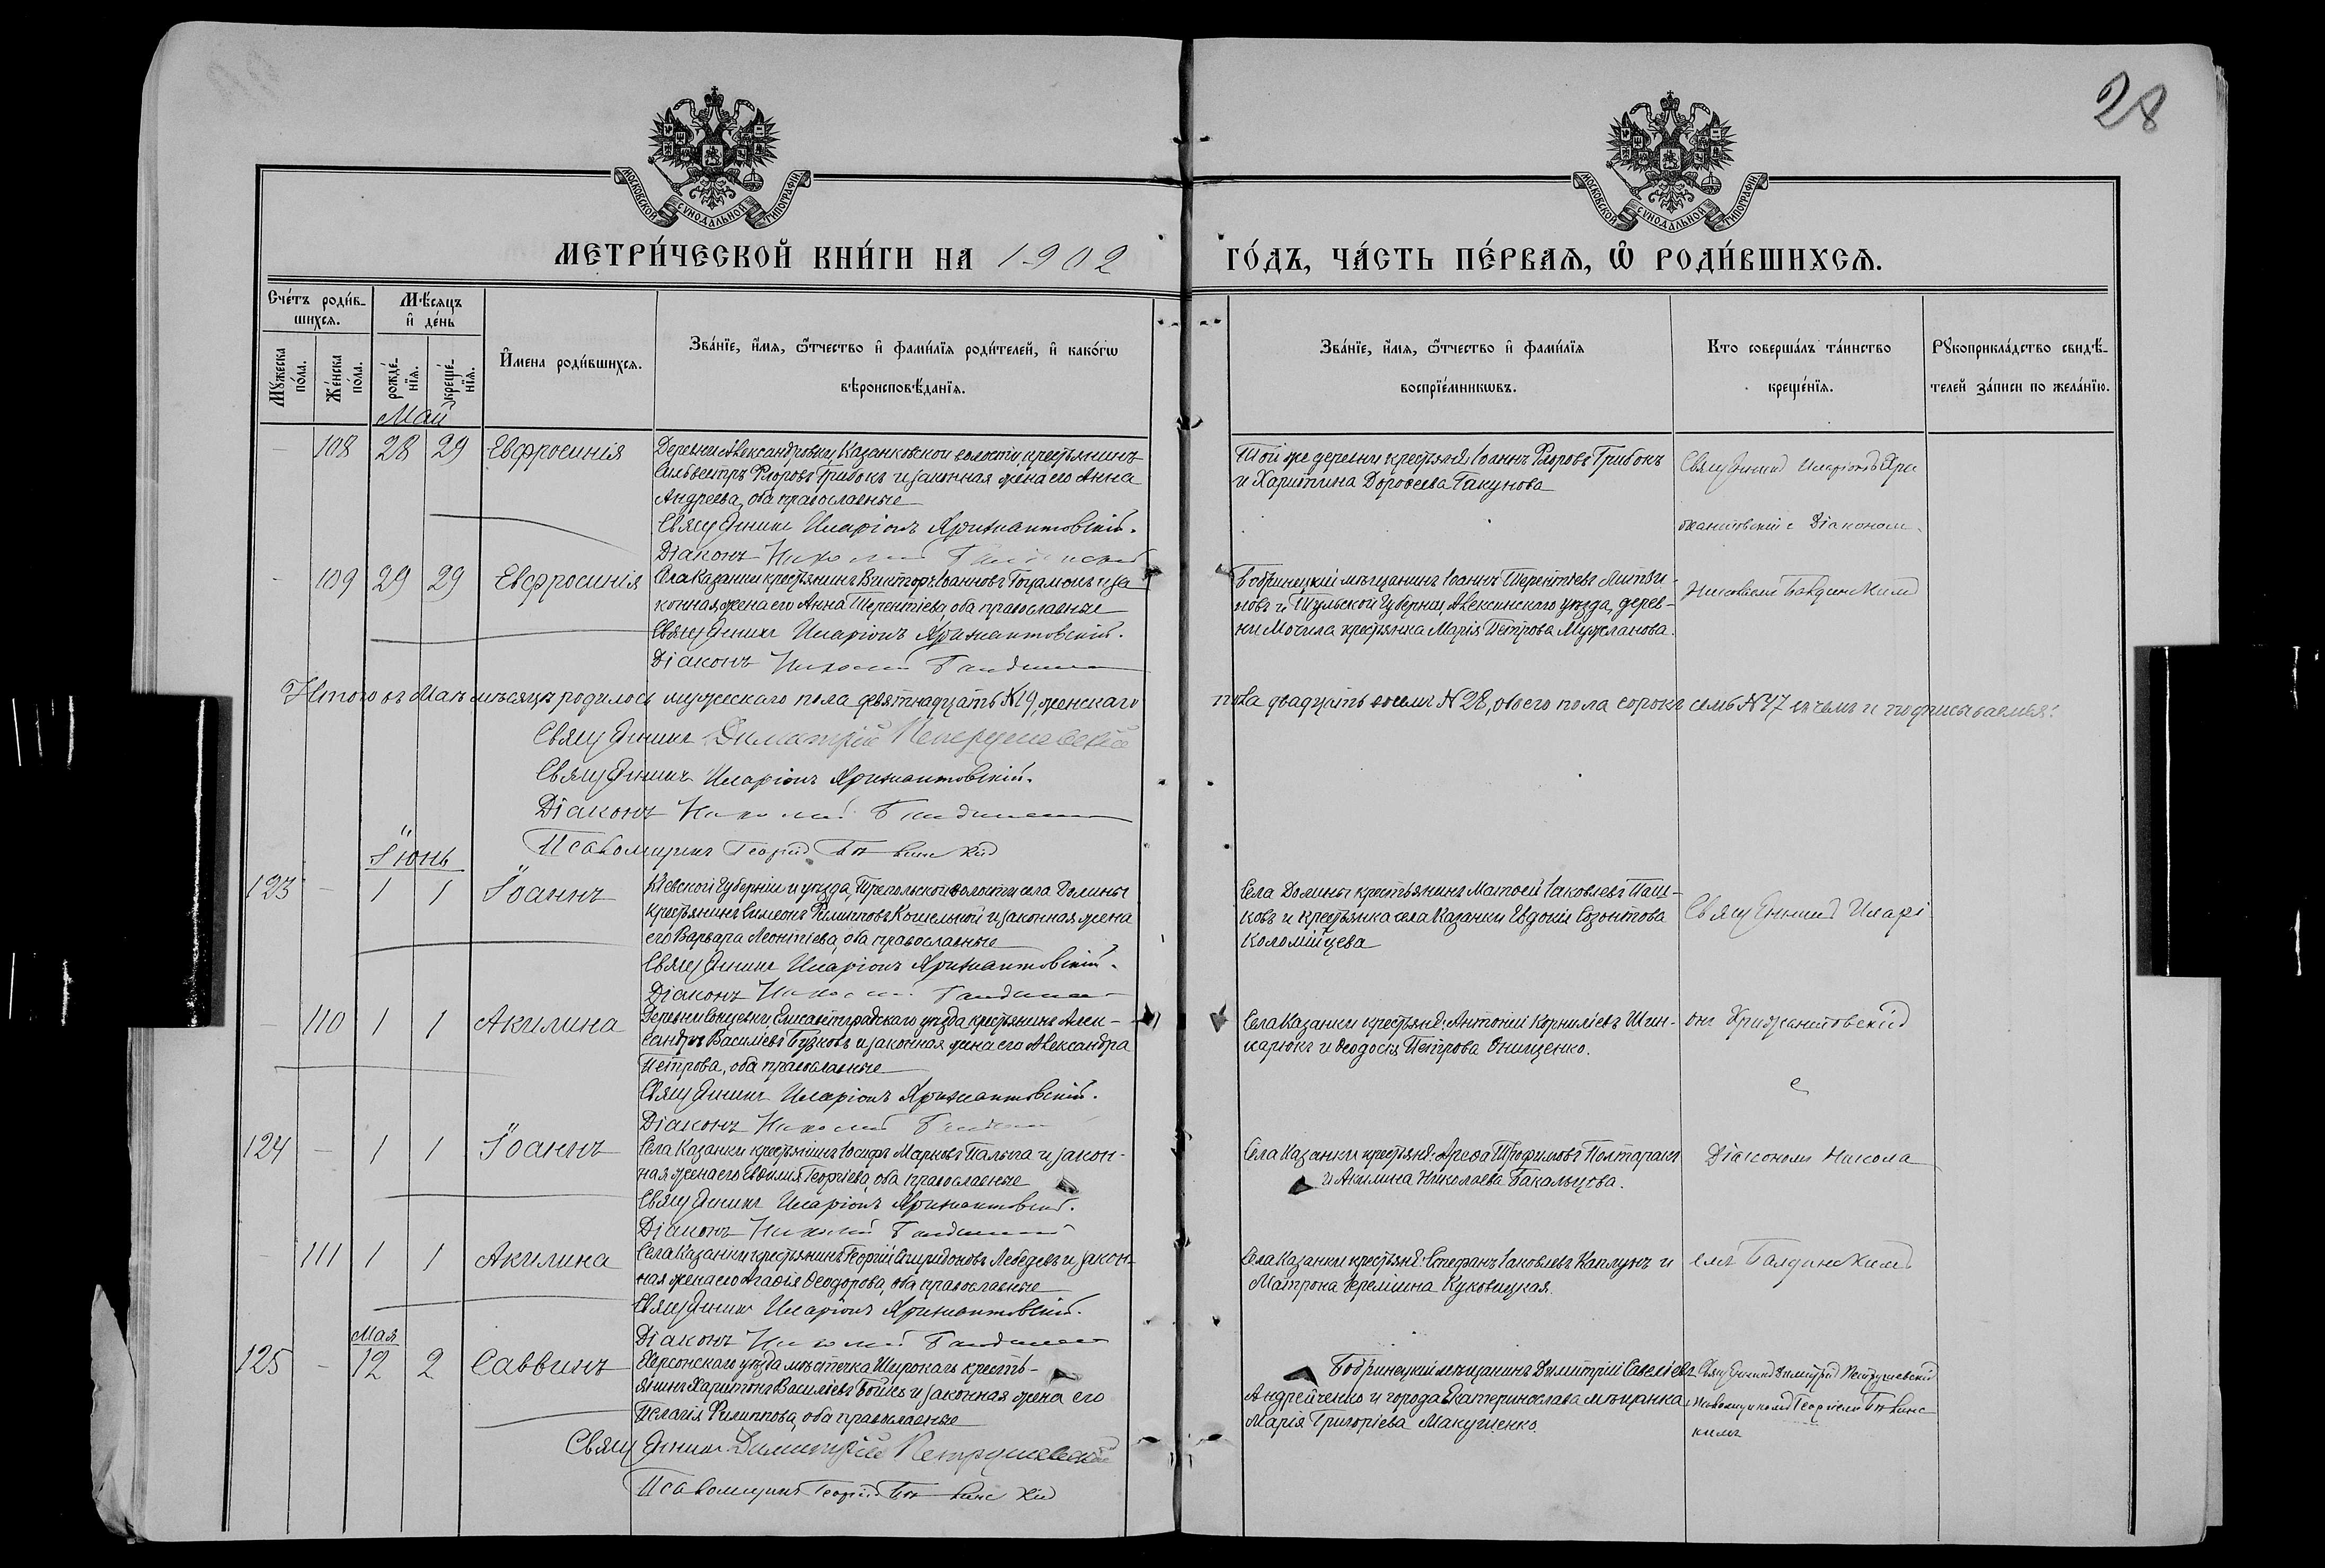 28
МОСКОВСКОЙ СУНОДАЛЬНОЙ ТИПОГРАФІИ
МОСКОВСКОЙ СУНОДАЛЬНОЙ ТИПОГРАФІИ
МЕТРИ́ЧЕСКОЙ КНИ́ГИ НА 1902
ГО́ДЪ, ЧА́СТЬ ПЕ́РВАѦ, Ѡ҆ РОДИ́ВШИХСѦ.
Сче́тъ роди́в-
шихсѧ.
Мꙋжеска по́ла.
Же́нска по́ла.
Мѣ́сѧцъ
и҆ де́нь
рожде́-
нїѧ.
креще́-
нїѧ.
И҆мена роди́вшихсѧ.
Зва́нїе, и҆́мѧ, ѻ҆́тчество и҆ фами́лїѧ роди́телей, и҆ како́гѡ
вѣроисповѣ́данїѧ.
Зва́нїе, и҆́мѧ, ѻ҆́тчество и҆ фами́лїѧ
воспрїе́мникѡвъ.
Кто соверша́лъ та́инство
креще́нїѧ.
Рꙋкоприкла́дство свидѣ́-
телей за́писи по жела́нїю.
Май
— 108 28 29 Евфросинія
Деревни Александровки Казанковской волости крестьянинъ
Сильвестръ Флоровъ Грибокъ и законная жена его Анна
Андреева, оба православные
Священникъ Иларіонъ Крижантовскій.
Діаконъ Николай
Той же деревни крестьяне: Іоаннъ Флоровъ Грибокъ
и Харитина Дорофеева Гакунова
Священникъ Иларіонъ Кри
жантовскій с Діакономъ
- 109 29 29 Евфросинія
Села Казанки крестьянинъ Викторъ Іоанновъ Гоцамонъ и за
конная жена его Анна Терентіева, оба православные
Священникъ Иларіонъ Крижантовскій.
Діаконъ Николай
Бобринецкій мѣщанинъ Іоаннъ Терентіевъ Литви-
новъ и Тульской Губерніи, Алексинскаго уѣзда, дерев-
ни Мочила крестьянка Марія Петрова Мужланова.
Николаемъ
Итого въ Маѣ мѣсяцѣ родилось мужескаго пола девятнадцать №19, женскаго
пола двадцать восемь №28, обоего пола сорокъ семь №47 въ чемъ и подписываемся:
Священникъ Димитрій Петрушевскій
Священникъ Иларіонъ Крижантовскій.
Діаконъ Николай
Псаломщикъ Георгій
Іюнь
123 — 1 1 Іоаннъ
Кіевской Губерніи и уѣзда, Трепольской волости села Долины
крестьянинъ Симеонъ Филипповъ Кошельной и законная жена
его Варвара Леонтіева, оба православные
Священникъ Иларіонъ Крижантовскій.
Діаконъ Николай
Села Долины крестьянинъ Матфей Іаковлевъ Паш-
ковъ и крестьянка села Казанки Евдокія Созонтова
Коломійцева
Священникъ Иларі
— 110 1 1 Акилина
Деревни Елисаветградскаго уѣзда крестьянинъ Алек-
сандръ Василіевъ Бузковъ и законная жена его Александра
Петрова, оба православные
Священникъ Иларіонъ Крижантовскій.
Діаконъ Николай
Села Казанки крестьяне: Антоній Корниліевъ Шин-
карюкъ и Феодосія Петрова Онищенко.
онъ Крижантовскій
с
124 — 1 1 Іоаннъ
Села Казанки крестьянинъ Іосифъ Марковъ Пальга и закон-
ная жена его Евфимія Георгіева, оба православные
Священникъ Иларіонъ Крижантовскій.
Діаконъ Николай
Села Казанки крестьяне: Арефа Трофимовъ Полтаракъ
и Акилина Николаева Бакальцова.
Діакономъ Никола
- 111 1 1 Акилина
Села Казанки крестьянинъ Георгій Спиридоновъ Лебедевъ и закон-
ная жена его Агафія Феодорова, оба православные
Священникъ Иларіонъ Крижантовскій.
Діаконъ Николай
Села Казанки крестьяне: Стефанъ Іаковлевъ Каплунъ и
Матрона Іереміина Куковицкая.
емъ
Мая
125 — 12 2 Саввинъ
Херсонскаго уѣзда мѣстечка Широкаго кресть-
янинъ Харитонъ Василіевъ Бойко и законная жена его
Пелагія Филиппова, оба православные
Священникъ Димитрій Петрушевскій
Псаломщикъ Георгій
Бобринецкій мѣщанинъ Димитрій Савеліевъ
Андрейченко и города Екатеринослава мѣщанка
Марія Григоріева Макушенко.
Священникъ Димитрій Петрушевскій
с псаломщикомъ Георгіемъ
кимъ